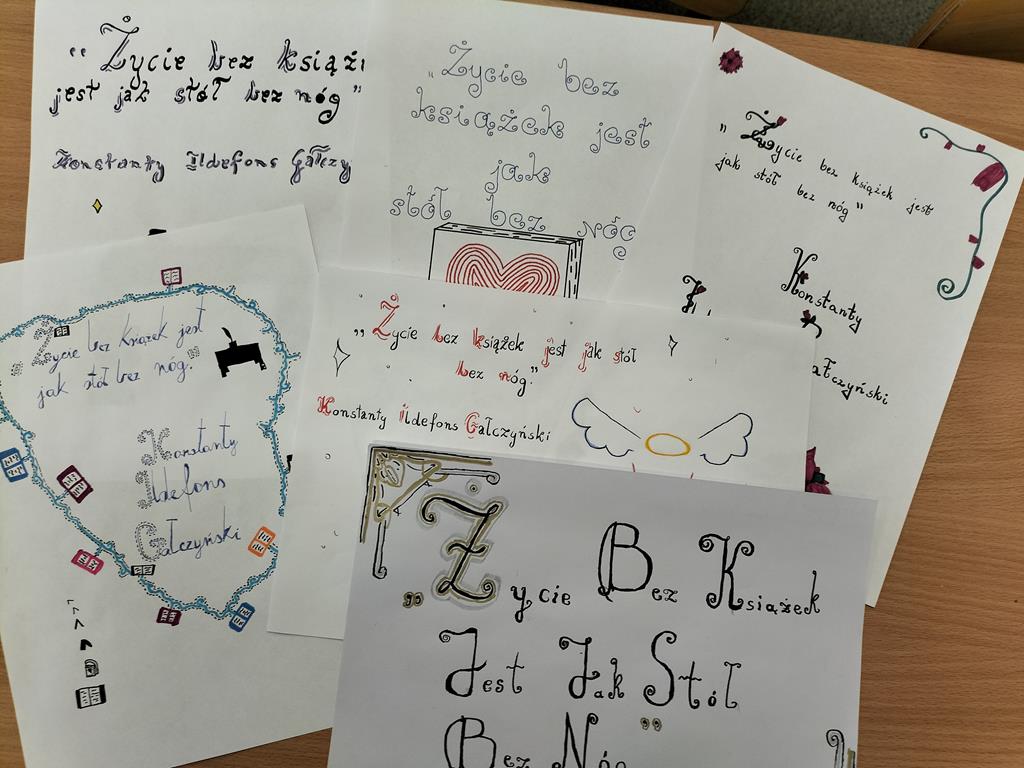 “Życie bez książ
jest jak stół bez nóg”
Konstanty Ildefons Gałczy
„Życie bez
książek jest
jak
stół bez nóg
„Życie bez książek jest
jak stół bez nóg”
Konstanty
ałczyński
Życie bez książek jest
jak stół bez nóg."
Konstanty
Ildefons
Gałczyński
„Życie bez książek jest jak stół
bez nóg.”
Konstanty Ildefons Gałczyński
„Życie Bez Książek
Jest Jak Stół
Bez Nóg”